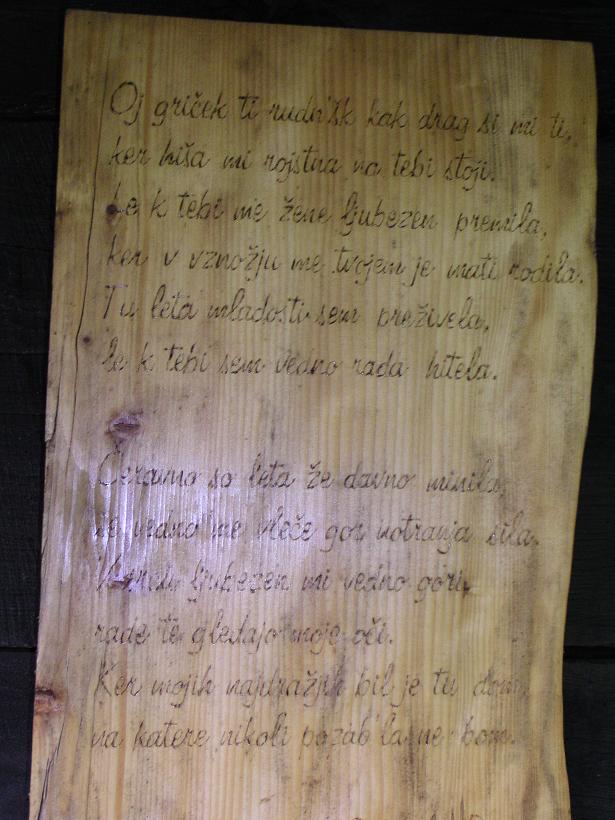 Oj griček ti rudn'šk kak drag si mi ti,
ker hiša mi rojstna na tebi stoji.
Le k tebi me žene ljubezen premila,
ker v vznožju me tvojem je mati rodila.
Tu leta mladosti sem preživela,
le k tebi sem vedno rada hitela.
Čeravno so leta že davno minila,
še vedno me vleče gor notranja sila.
ljubezen mi vedno gori,
rade te gledajo moje oči.
Ker mojih najdražjih bil je tu dom,
na katere nikoli pozab'la ne bom.